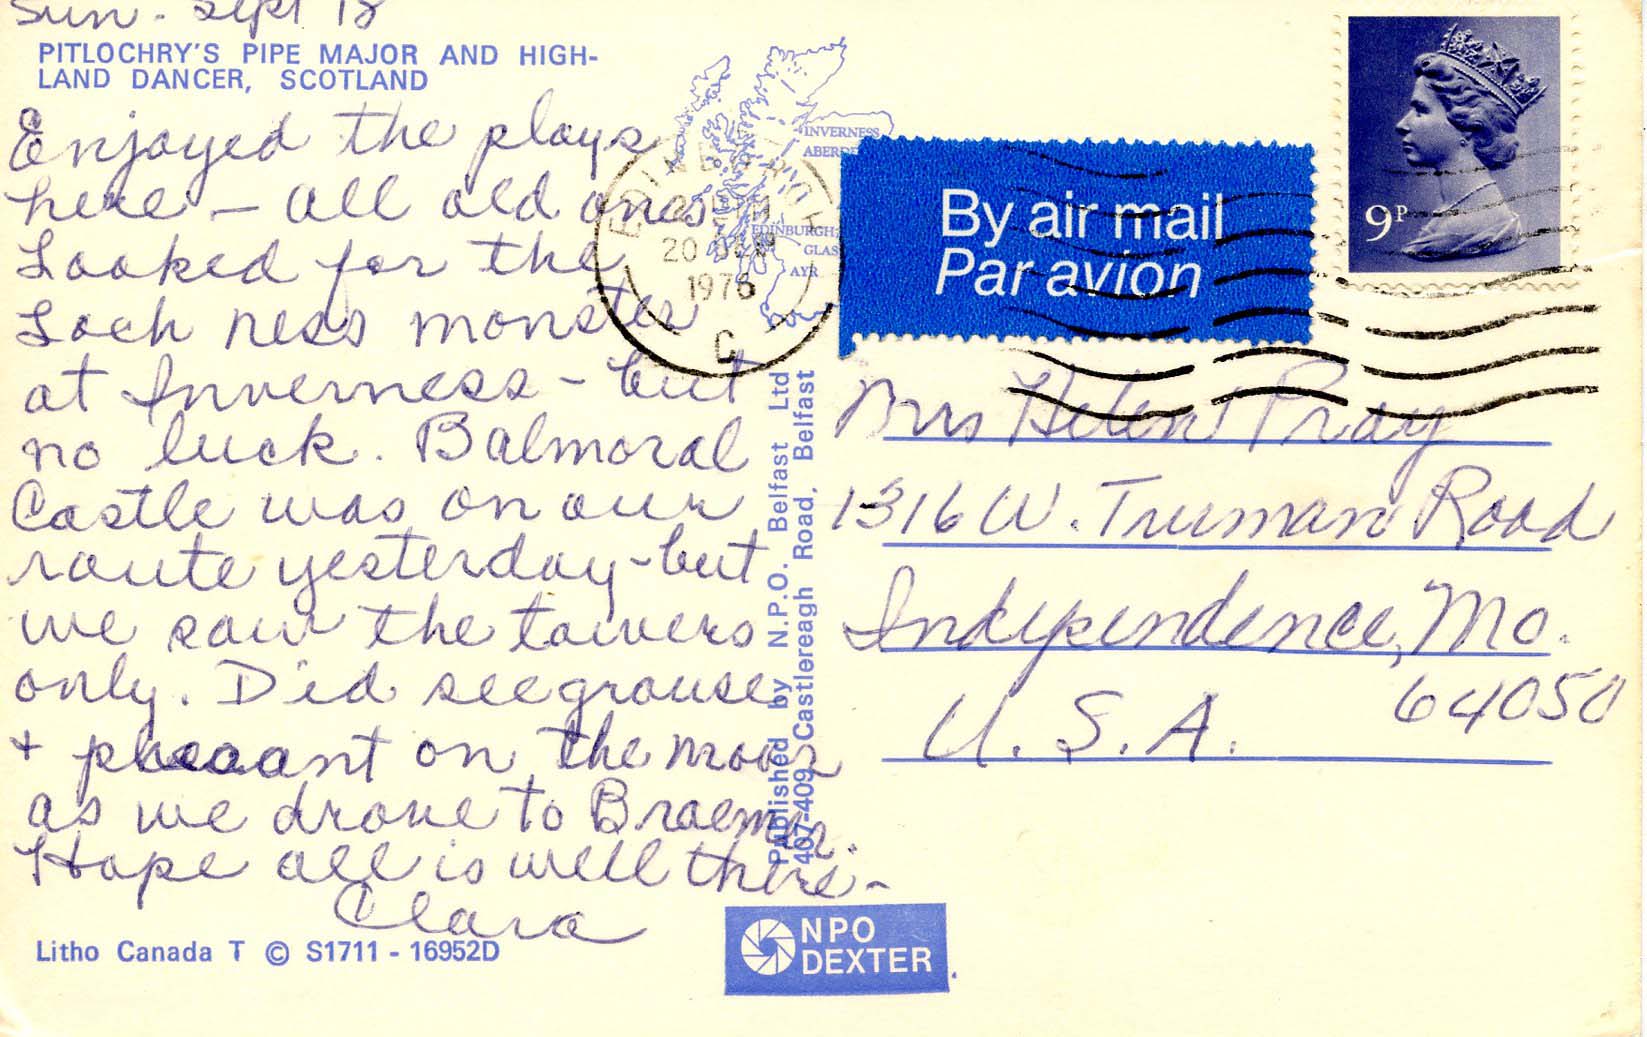 Sun. Sept 18
PITLOCHRY'S PIPE MAJOR AND HIGH-
LAND DANCER, SCOTLAND
Enjoyed the plays
here – all old ones
Looked for the
Loch ness monster
at Inverness – but
no luck. Balmoral
Castle was on our
route yesterday – but
we saw the towers
only. Did see grouse
+ pheasant on the moors
as we drove to Braemar.
Hope all is well there –
Clara
Litho Canada T © S1711 - 16952D
INVERNESS
EDINBURGH
AYR
EDINBURGH
20 SEP
1976
C
Published by N.P.O. Belfast Ltd
407-409 Castlereagh Road, Belfast
NPO
DEXTER
By air mail
Par avion
9P
Mrs Helen Pray
1316 W. Truman Road
Independence, Mo.
64050
U.S.A.